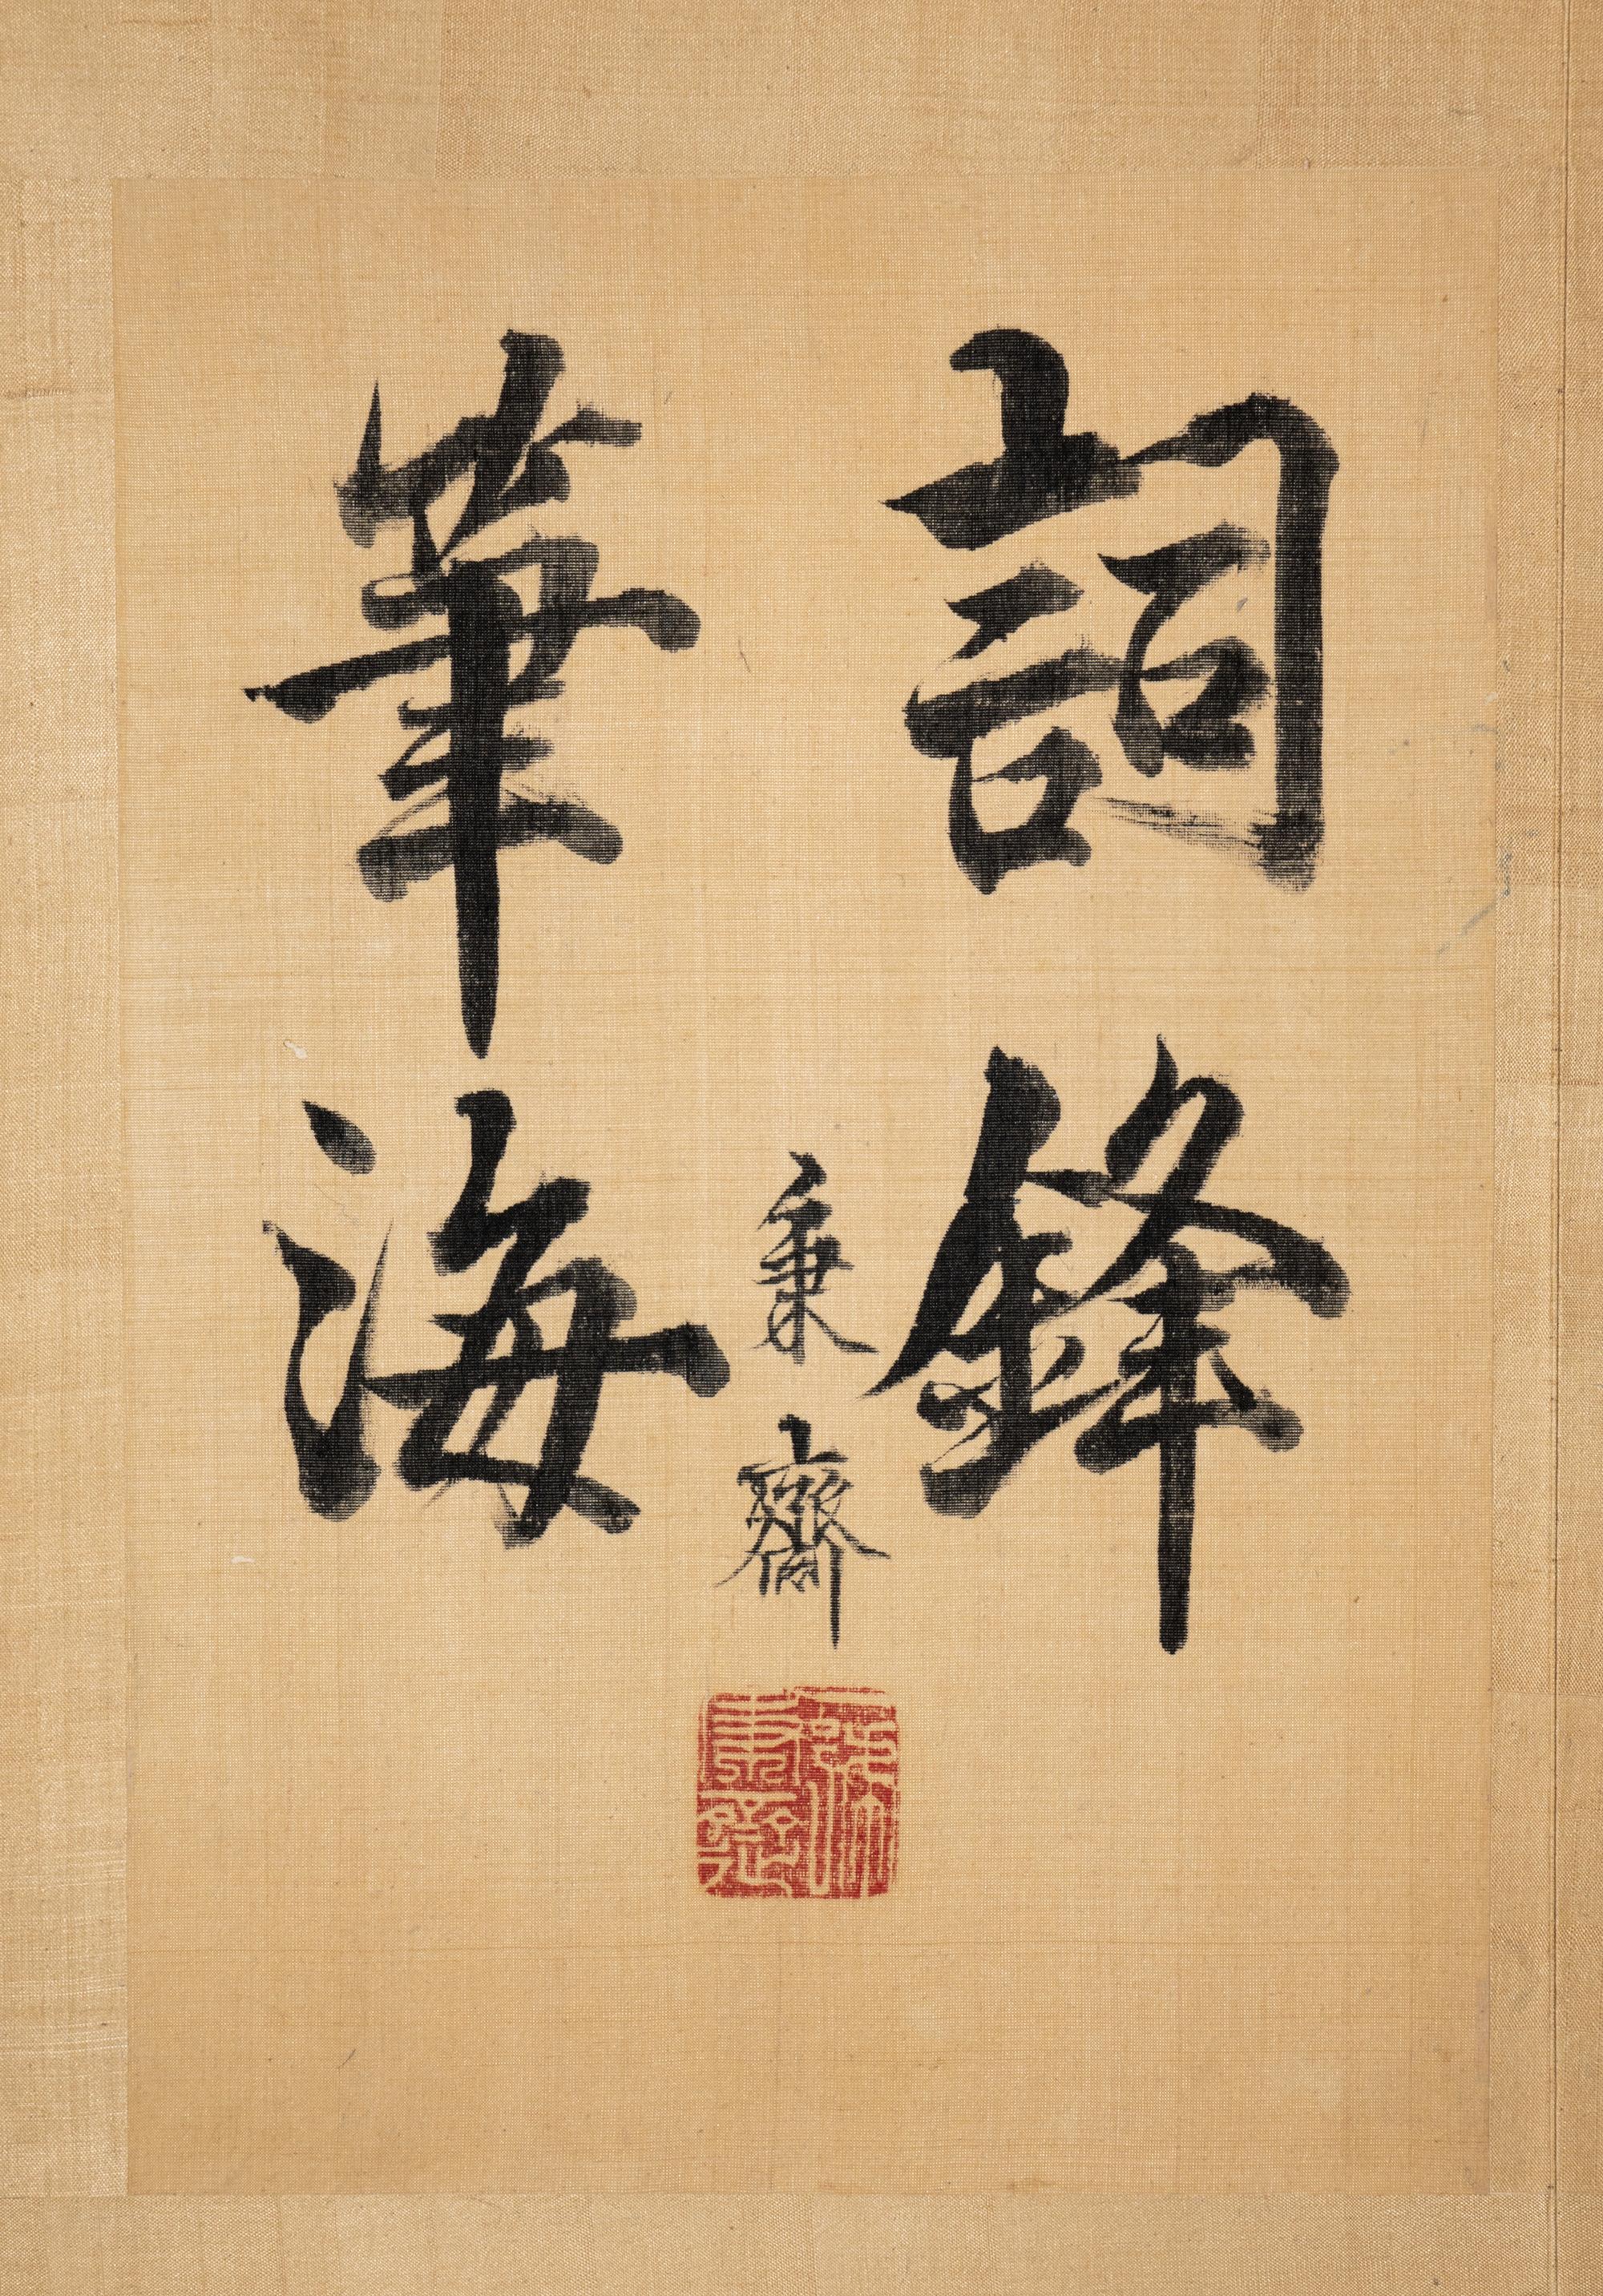 詞鋒
筆海
秉齋